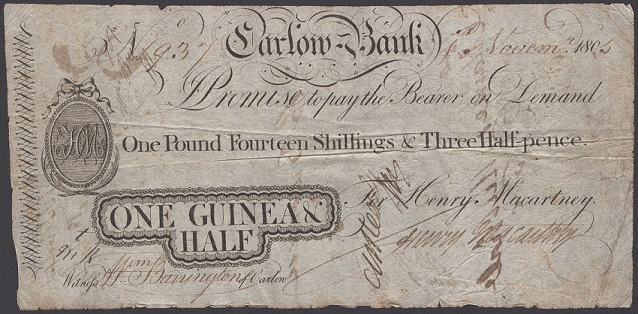 N 937 Carlow-Bank 6 Novem.r 1805
I Promise to pay the Bearer on Demand
One Pound Fourteen Shillings & Three Half-pence.
For Henry Macartney.
ONE GUINEA &
HALF
Henry Macartney
Witness Wm Barrington of Carlow